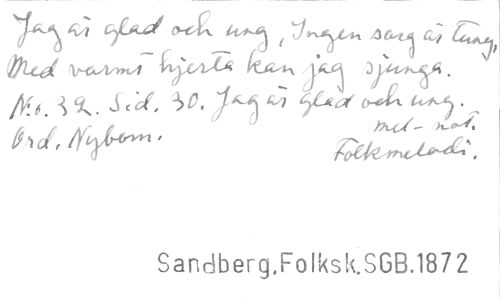 Jag är glad och ung, Ingen sorg är tung,
Med varmt hjerta kan jag sjunga.
N:o. 32. Sid. 30. Jag är glad och ung.
Ord. Nybom. mel-not.
Folkmelodi.
Sandberg,Folksk.SGB.1872